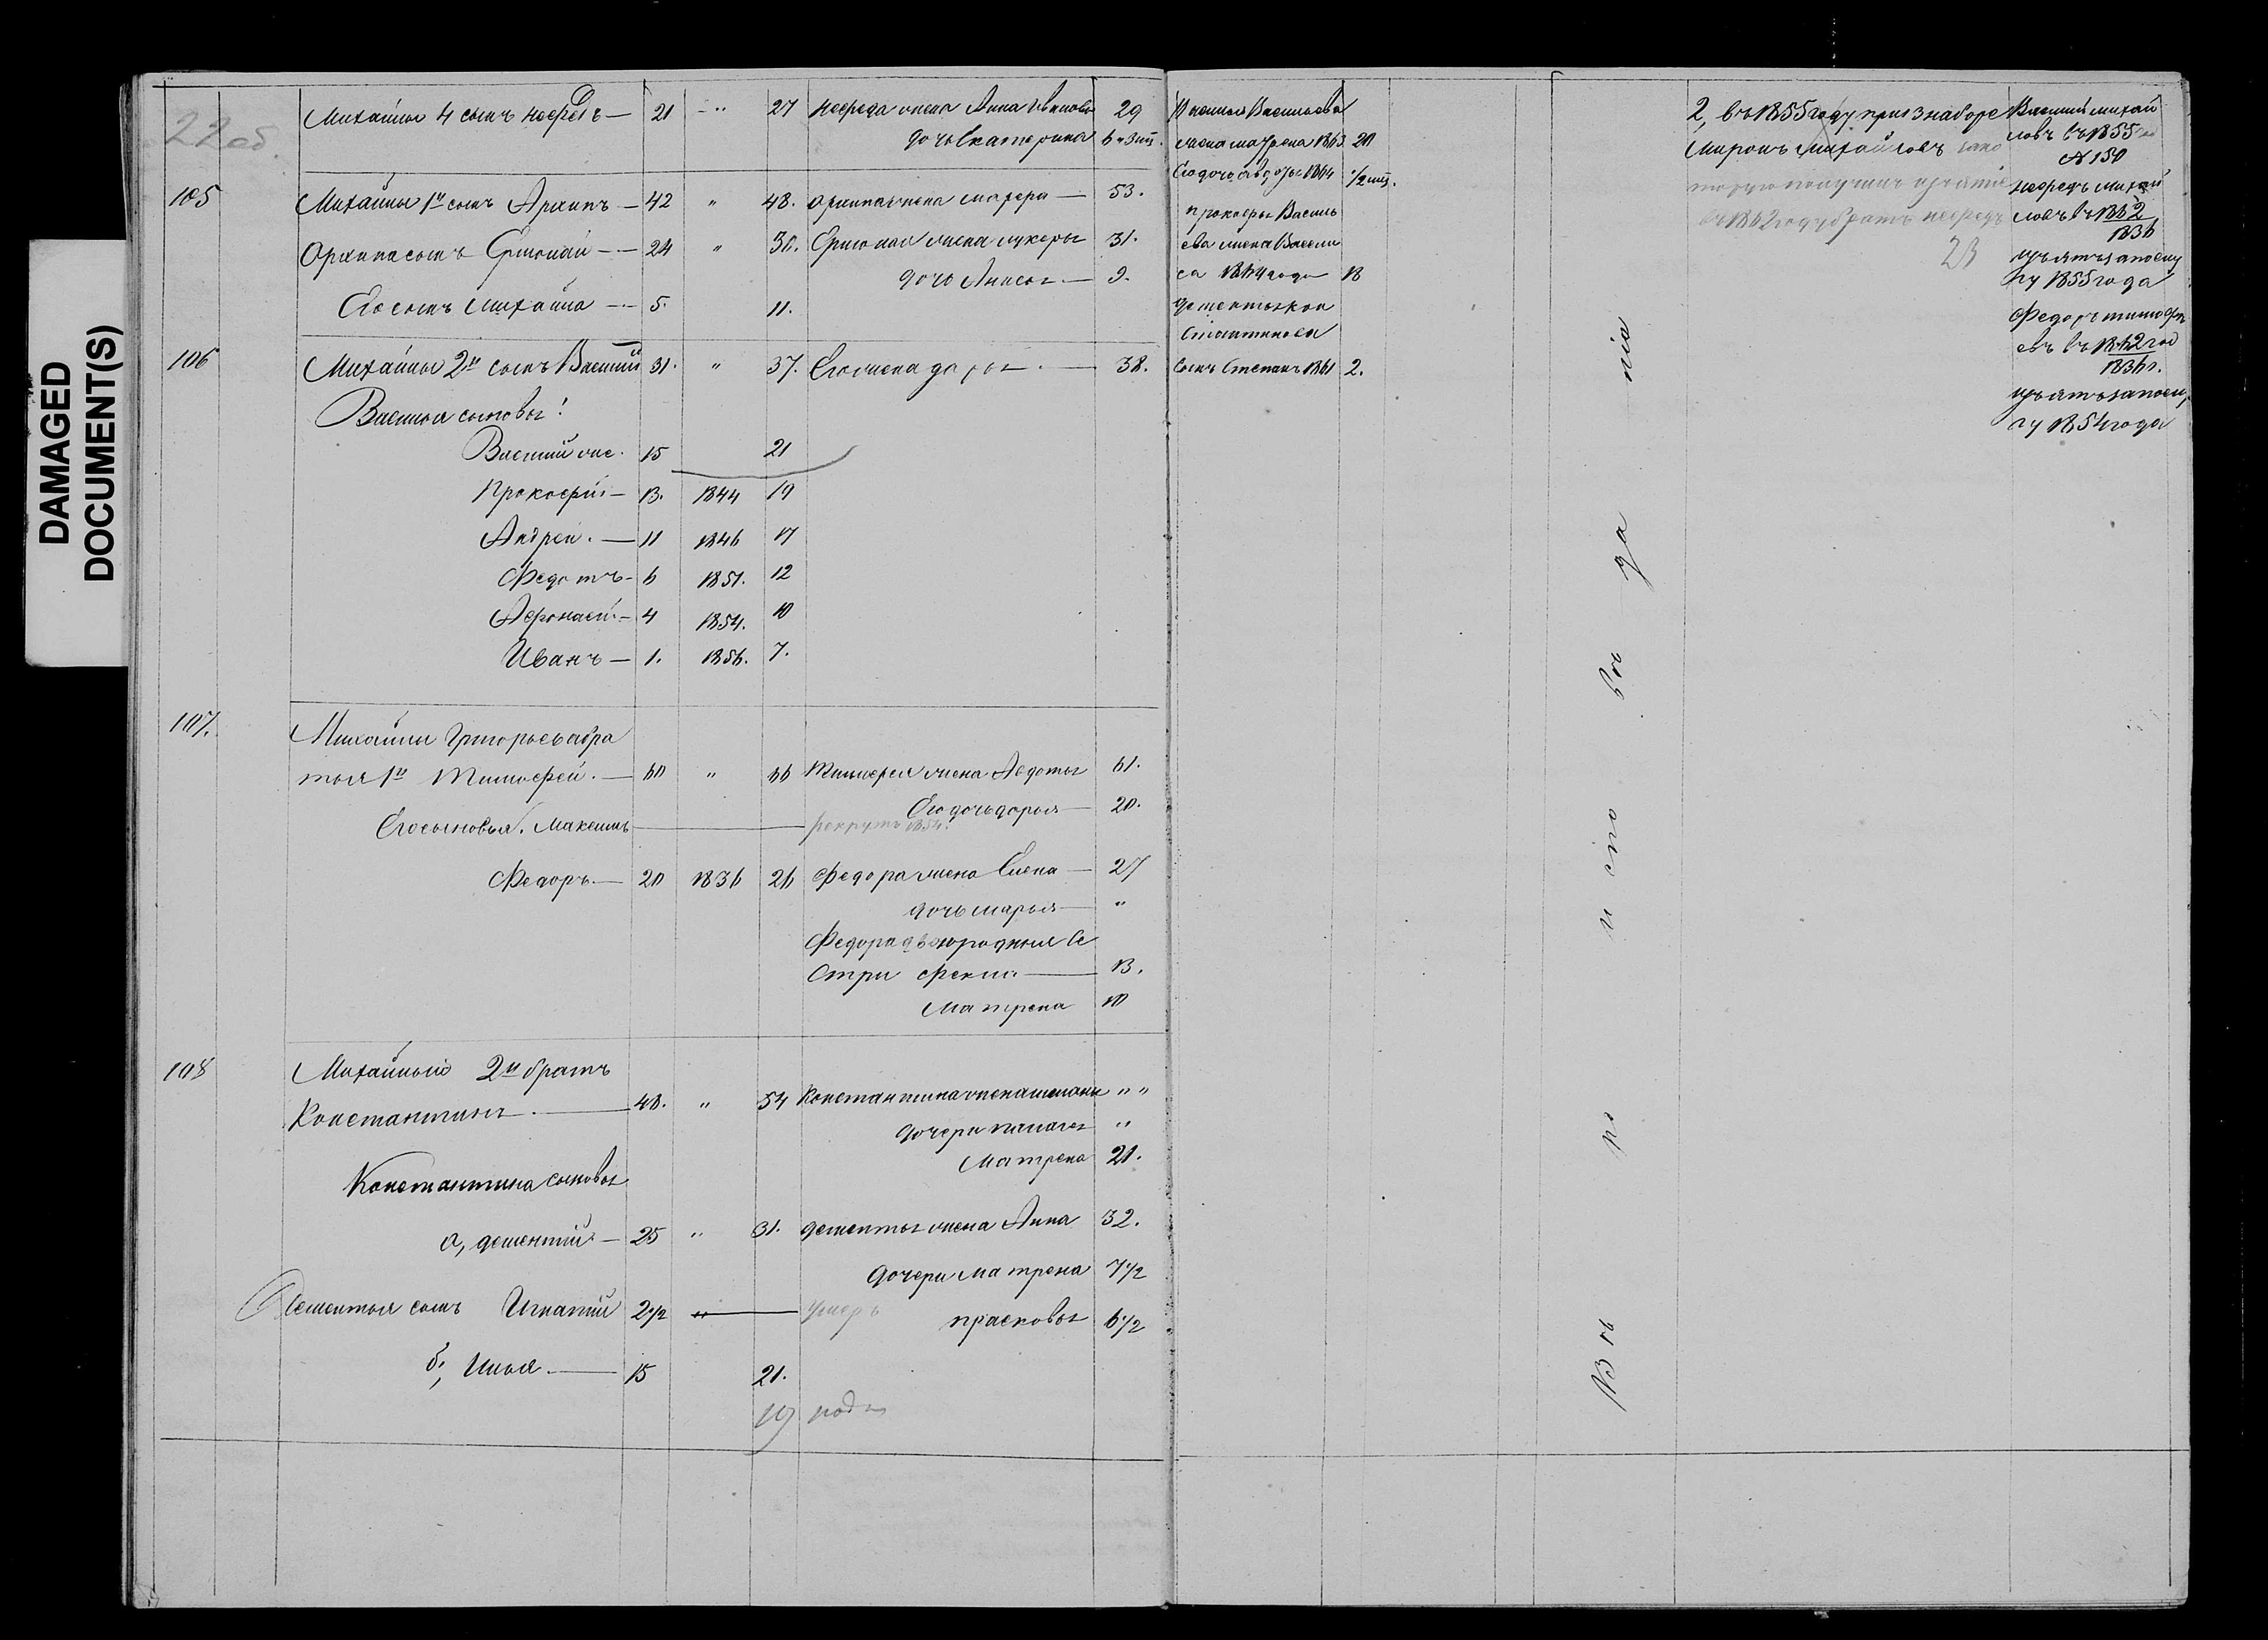 DAMAGED
DOCUMENT(S)
22 об.
Михайлы 4 сынъ Нефедъ — 21 " 27 Нефеда жена Анна Иванова 29
дочь Екатерина 6 и 3 мѣ.
105 Михайлы 1й сынъ Архипъ — 42 " 48. Архипа жена Мафера — 53.
Архипа сынъ Ермолай — 24 " 30. Ермолая жена Лукерья 31.
дочь Анисья — 9.
Его сынъ Михайла — 5. 11.
106 Михайлы 2й сынъ Василий 31. " 37. Его жена Дарья — 38.
Василья сыновья:
Василий же. 15 21
Прокофий — 13. 1844 19
Андрей. — 11 1846 17
Федотъ — 6 1851. 12
Афонасий — 4 1854. 10
Иванъ — 1. 1856. 7.
107. Михайлы Григорьева бра
тья 1й Тимофей. — 60 " 66 Тимофея жена Авдотья 61.
Его дочь Дарья — 20.
Его сыновья. Максимъ — рекрутъ 1854.
Федоръ — 20 1836 26 Федора жена Елена — 27
дочь Марья — "
Федора двоюродныя Се
стри Фекла — 13.
Матрена 10
108 Михайлы 2й братъ
Константинъ — 48. " 54 Константина жена " "
дочери Пелагея "
Матрена 21.
Константина сыновья
а, Дементий — 25 " 31. Дементья жена Анна 32.
дочери Матрена 7 1/2
Дементья сынъ Игнатий 2 1/2 " — умеръ
Прасковья 6 1/2
б, Илья — 15 21.
19
Василья Васильева
жена Матрена 1863 20
Его дочь Авдотья 1864 1/2 мѣ.
Прокофья Василь
ева жена Васели
са 1864 года 18
Дементья Кон
стантинова
сынъ Степанъ 1861 2.
Въ
и
сто
въ
да
нія
2, въ 1855 году при 3 наборе
Миронъ Михайловъ
въ 1862 году братъ Нефедъ
23
Василий Михай
ловъ въ 1855 год
№ 150
Нефедъ Михай
ловъ въ 1862
1836
изъятъ запоелу
гу 1855 года
Федоръ Тимофе
евъ въ 1862 год
1836 г.
изъятъ запоелу
гу 1854 года